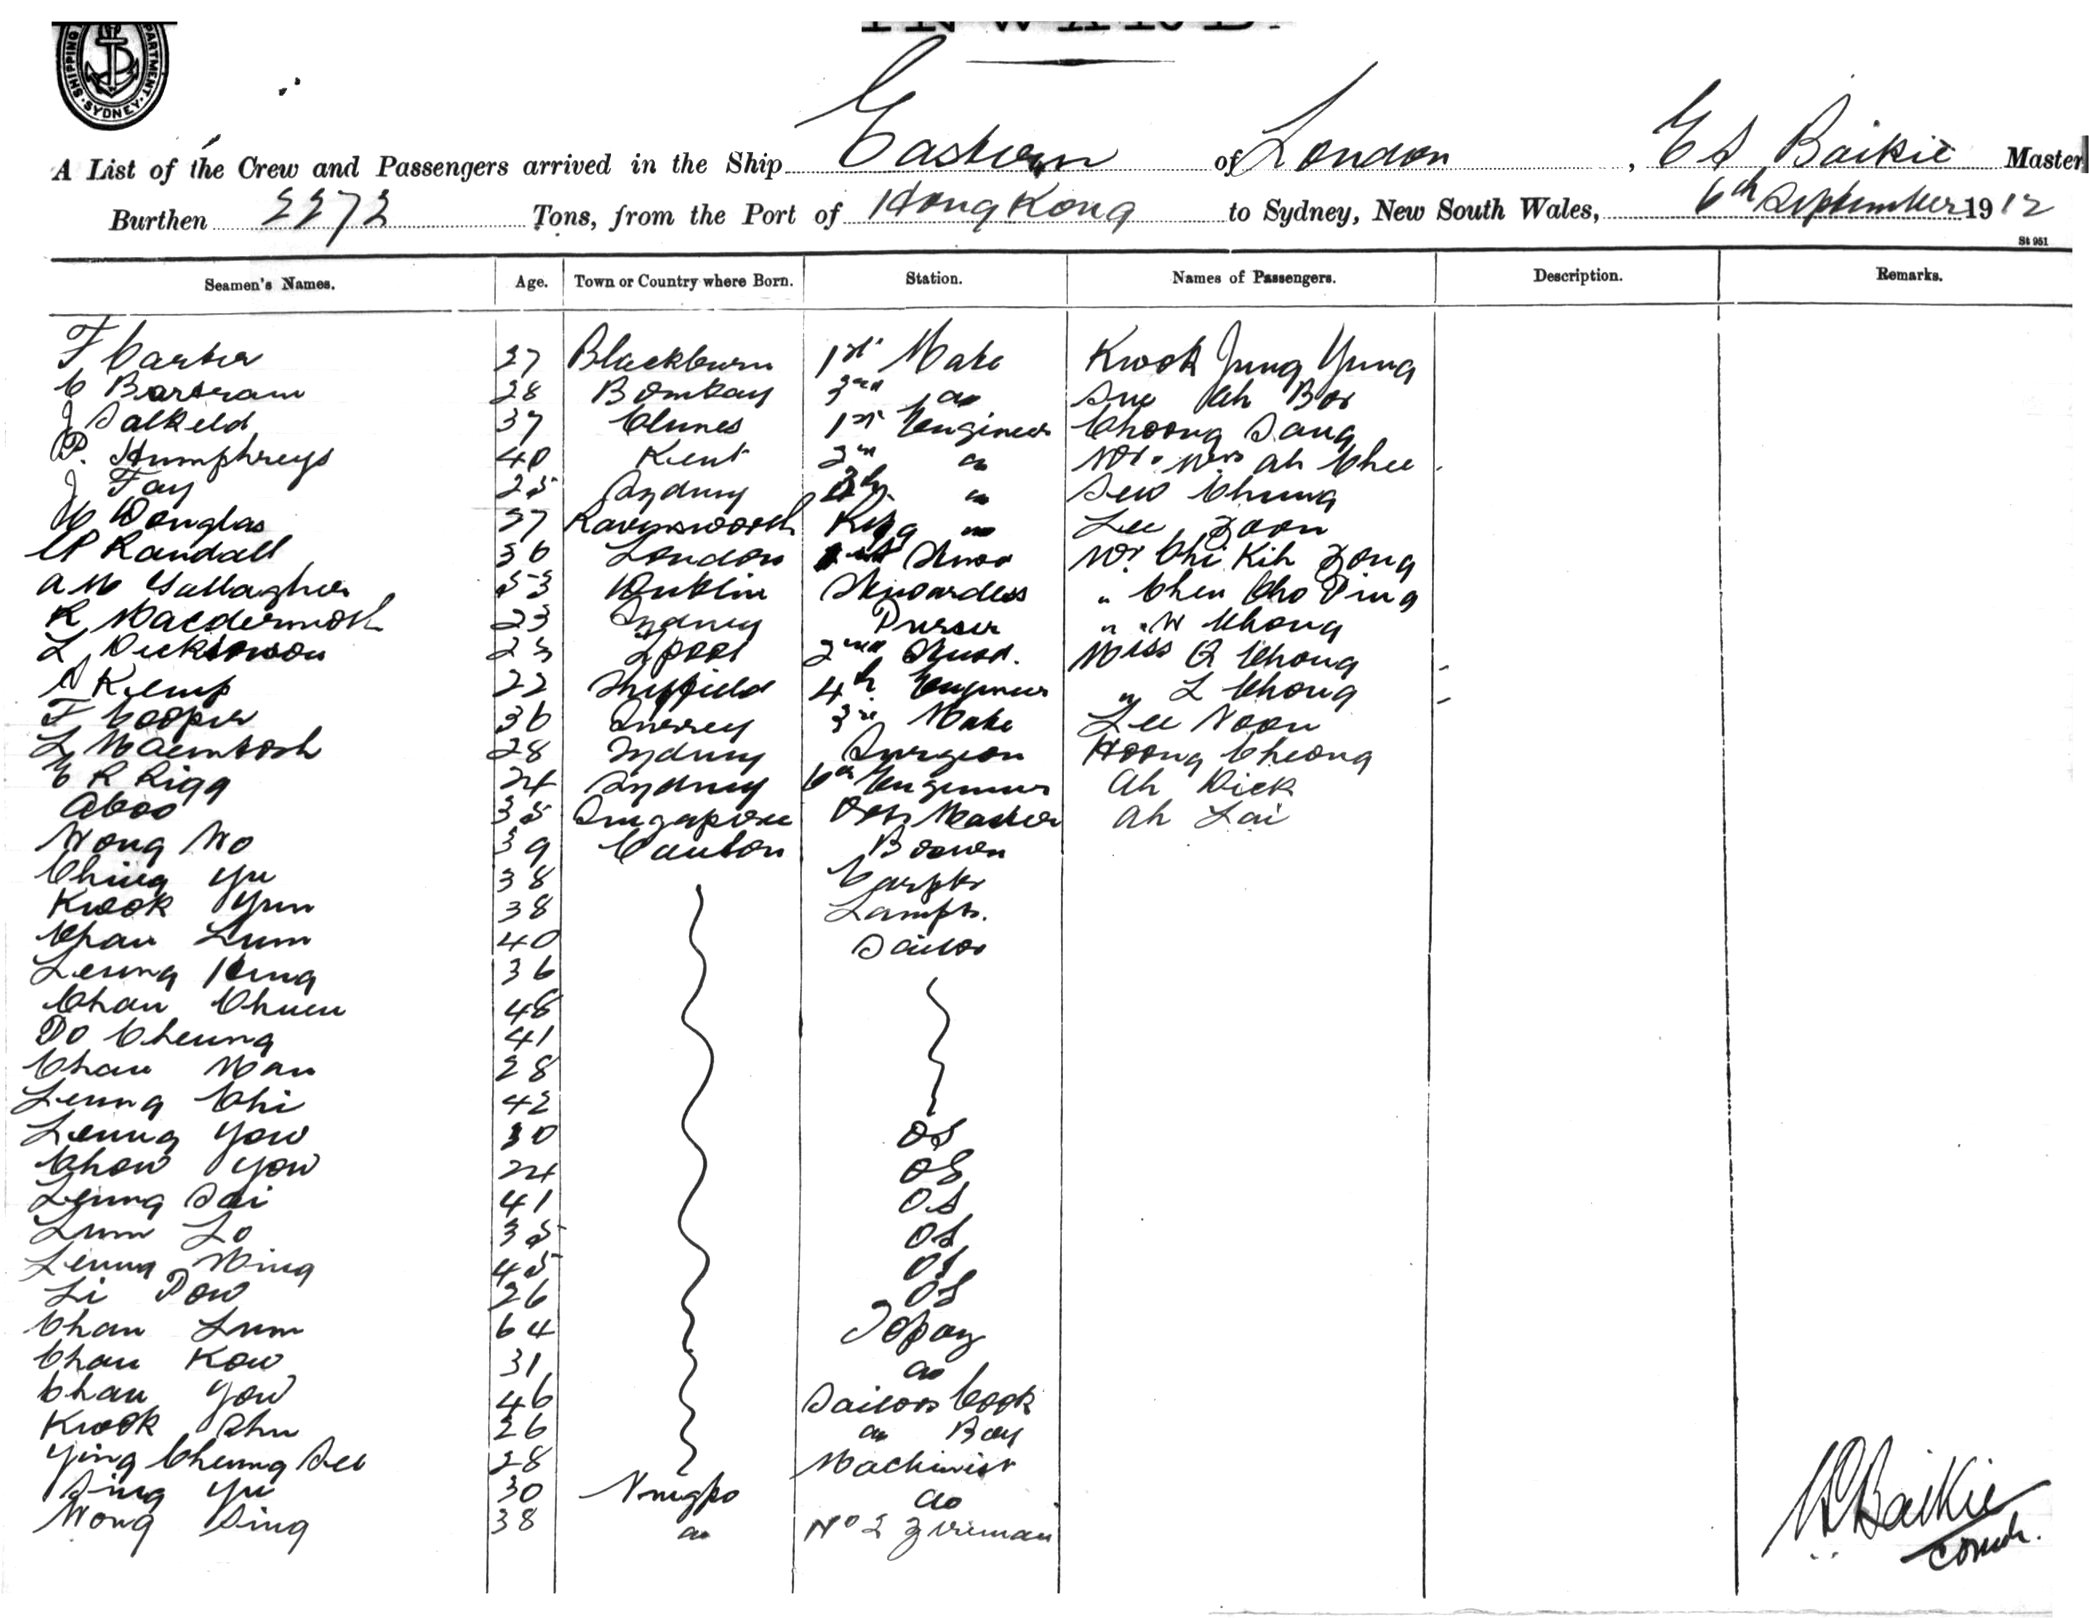 SHIPPING DEPARTMENT SYDNEY
INWARD.
A List of the Crew and Passengers arrived in the Ship Eastern of London, E S Baikie Master
Burthen 2272 Tons, from the Port of Hong Kong to Sydney, New South Wales, 6th September 1912
St 951
Seamen's Names. Age. Town or Country where Born. Station. Names of Passengers. Description. Remarks.
F Carter 37 Blackburn 1st Mate Kwok Jung Yung
C Bartram 28 Bombay 2nd do Sue Ah Bor
J Salkeld 37 Clunes 1st Engineer Choong Sang
P. Humphreys 40 Kent 2nd do Mr. Mrs Ah Chee
J Fay 25 Sydney 3rd do Sew Chung
C Douglas 27 Ravensworth Rfg do Lee Foon
C P Randall 36 London 1st Stwd Mr Chi Kih Fong
A M Gallagher 53 Dublin Stewardess " Chen Cho Ping
R Macdermott 23 Sydney Purser " W Chong
L Dickinson 23 L'pool 2nd Stwd. Miss Q Chong
A Kemp 22 Sheffield 4th Engineer " L Chong
F Cooper 36 Surrey 3rd Mate Lee Noon
L Macintosh 28 Sydney Surgeon Hoong Cheong
E R Rigg 24 Sydney 6th Engineer Ah Dick
Aboo 35 Singapore Qtr Master Ah Lai
Wong Wo 39 Canton Boswn
Ching Yu 38 Carptr
Kwok Yun 38 Lamptr.
Chan Lum 40 Sailor
Leung King 36
Chan Chuen 48
Do Cheung 41
Chan Man 28
Leung Chi 42
Leung Yow 30 OS
Chow Yow 24 OS
Leung Sai 41 OS
Lum Lo 35 OS
Leung Ming 45 OS
Li Pow 26 OS
Chan Lum 64 Topay
Chan Kow 31 do
Chan Yow 46 Sailors Cook
Kwok Shu 26 do Boy
Ying Cheung See 28 Machinist
Sing Yu 30 Ningpo do
Wong Sing 38 do No 2 Fireman
Baikie
Comdr.